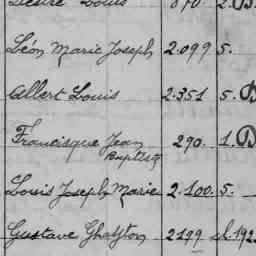 Désiré Louis 870. 2. B
Léon Marie Joseph 2.099 5.
Albert Louis 2.351 5. B
Francisque Jean 290. 1. B
Baptiste
Louis Joseph Marie 2.100. 5.
Gustave Ghaston 2199 ch. 192